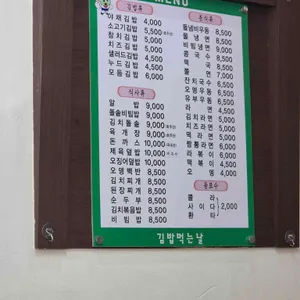 MENU
김밥류
야채김밥 4,000
소고기김밥 5,500
참치김밥 5,000
치즈김밥 5,000
샐러드김밥 4,500
누드김밥 4,500
모듬김밥 6,000
식사류
알밥 9,000
돌솥비빔밥 9,000
김치돌솥 9,000
육개장 9,000
돈까스 10,000
제육덮밥 10,000
오징어덮밥 10,000
오뎅백반 8,500
김치찌개 8,500
된장찌개 8,500
순두부 8,500
김치볶음밥 8,500
비빔밥 8,500
분식류
돌냄비우동 8,500
물냉면 8,500
비빔냉면 9,000
콩국수 8,500
떡국 8,500
쫄면 7,000
잔치국수 6,500
오뎅우동 6,500
유부우동 6,500
라면 4,500
김치라면 5,500
치즈라면 5,500
떡라면 5,500
짬뽕라면 5,500
라볶이 6,500
떡볶이 4,500
오뎅 4,000
음료수
콜라
사이다 2,000
환타
김밥먹는날